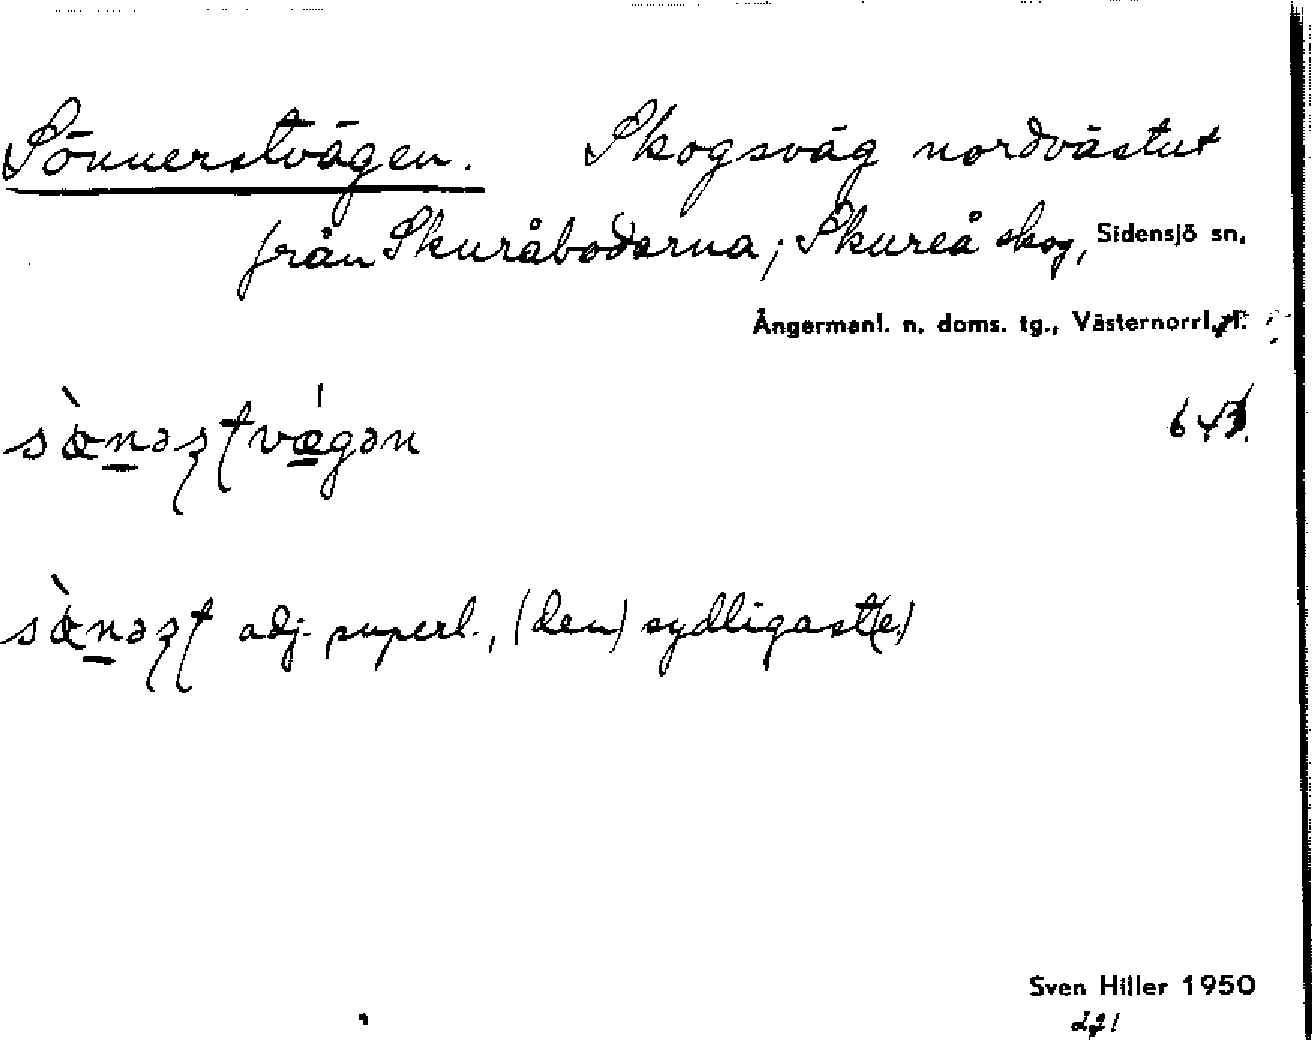 Sönnerstvägen. Skogsväg nordvästut
från Skuråbodarna; Skureå skog, Sidensjö sn,
Ångermanl. n. doms. tg., Västernorrl. l.
sœ̀nəʂʈvǽgən
sœ̀nəʂʈ adj. superl., (den) sydligast(e)
Sven Hiller 1950